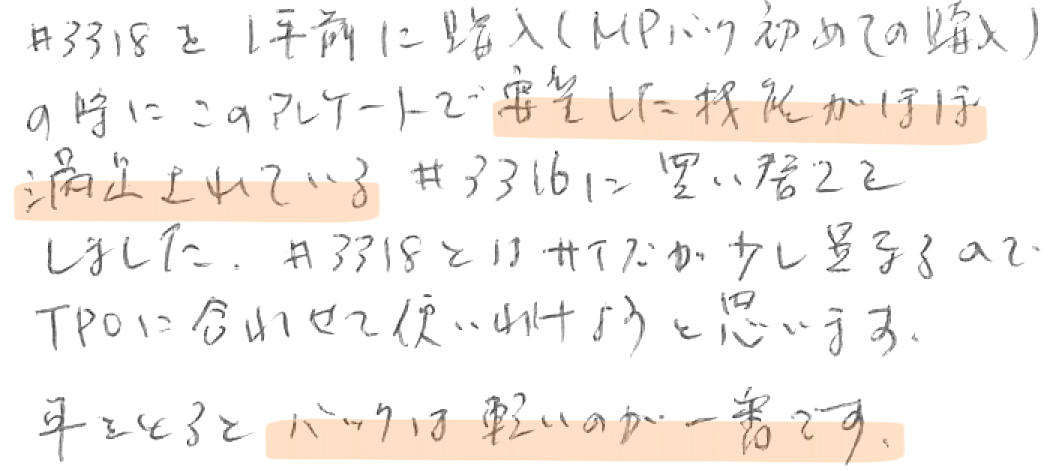 #3318を1年前に購入(MPバック初めての購入)
の時にこのアンケートで要望した機能がほぼ
満足されている#3316に買い替えを
しました。#3318とはサイズが少し異なるので
TPOに合わせて使いわけようと思います。
年をとるとバックは軽いのが一番です。